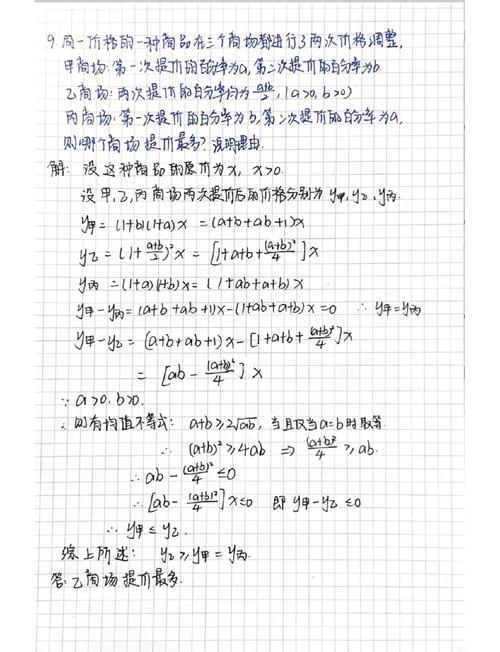 9. 同一价格的一种商品在三个商场都进行了两次价格调整,
甲商场:第一次提价的百分率为a,第二次提价的百分率为b.
乙商场:两次提价的百分率均为\frac{a+b}{2},(a>0,b>0)
丙商场:第一次提价的百分率为b,第二次提价的百分率为a,
则哪个商场提价最多?说明理由.
解:设这种商品的原价为x,x>0.
设甲、乙、丙商场两次提价后的价格分别为y甲,y乙,y丙.
y甲=(1+b)(1+a)x=(a+b+ab+1)x
y乙=(1+\frac{a+b}{2})²x=[1+a+b+\frac{(a+b)²}{4}]x
y丙=(1+a)(1+b)x=(1+ab+a+b)x
y甲-y丙=(a+b+ab+1)x-(1+ab+a+b)x=0 ∴y甲=y丙
y甲-y乙=(a+b+ab+1)x-[1+a+b+\frac{(a+b)²}{4}]x
=[ab-\frac{(a+b)²}{4}]x
∵a>0,b>0.
∴则有均值不等式:a+b≥2√ab,当且仅当a=b时取等.
∴(a+b)²≥4ab ⇒ \frac{(a+b)²}{4}≥ab.
∴ab-\frac{(a+b)²}{4}≤0
∴[ab-\frac{(a+b)²}{4}]x≤0 即y甲-y乙≤0
∴y甲≤y乙.
综上所述:y乙≥y甲=y丙.
答:乙商场提价最多.